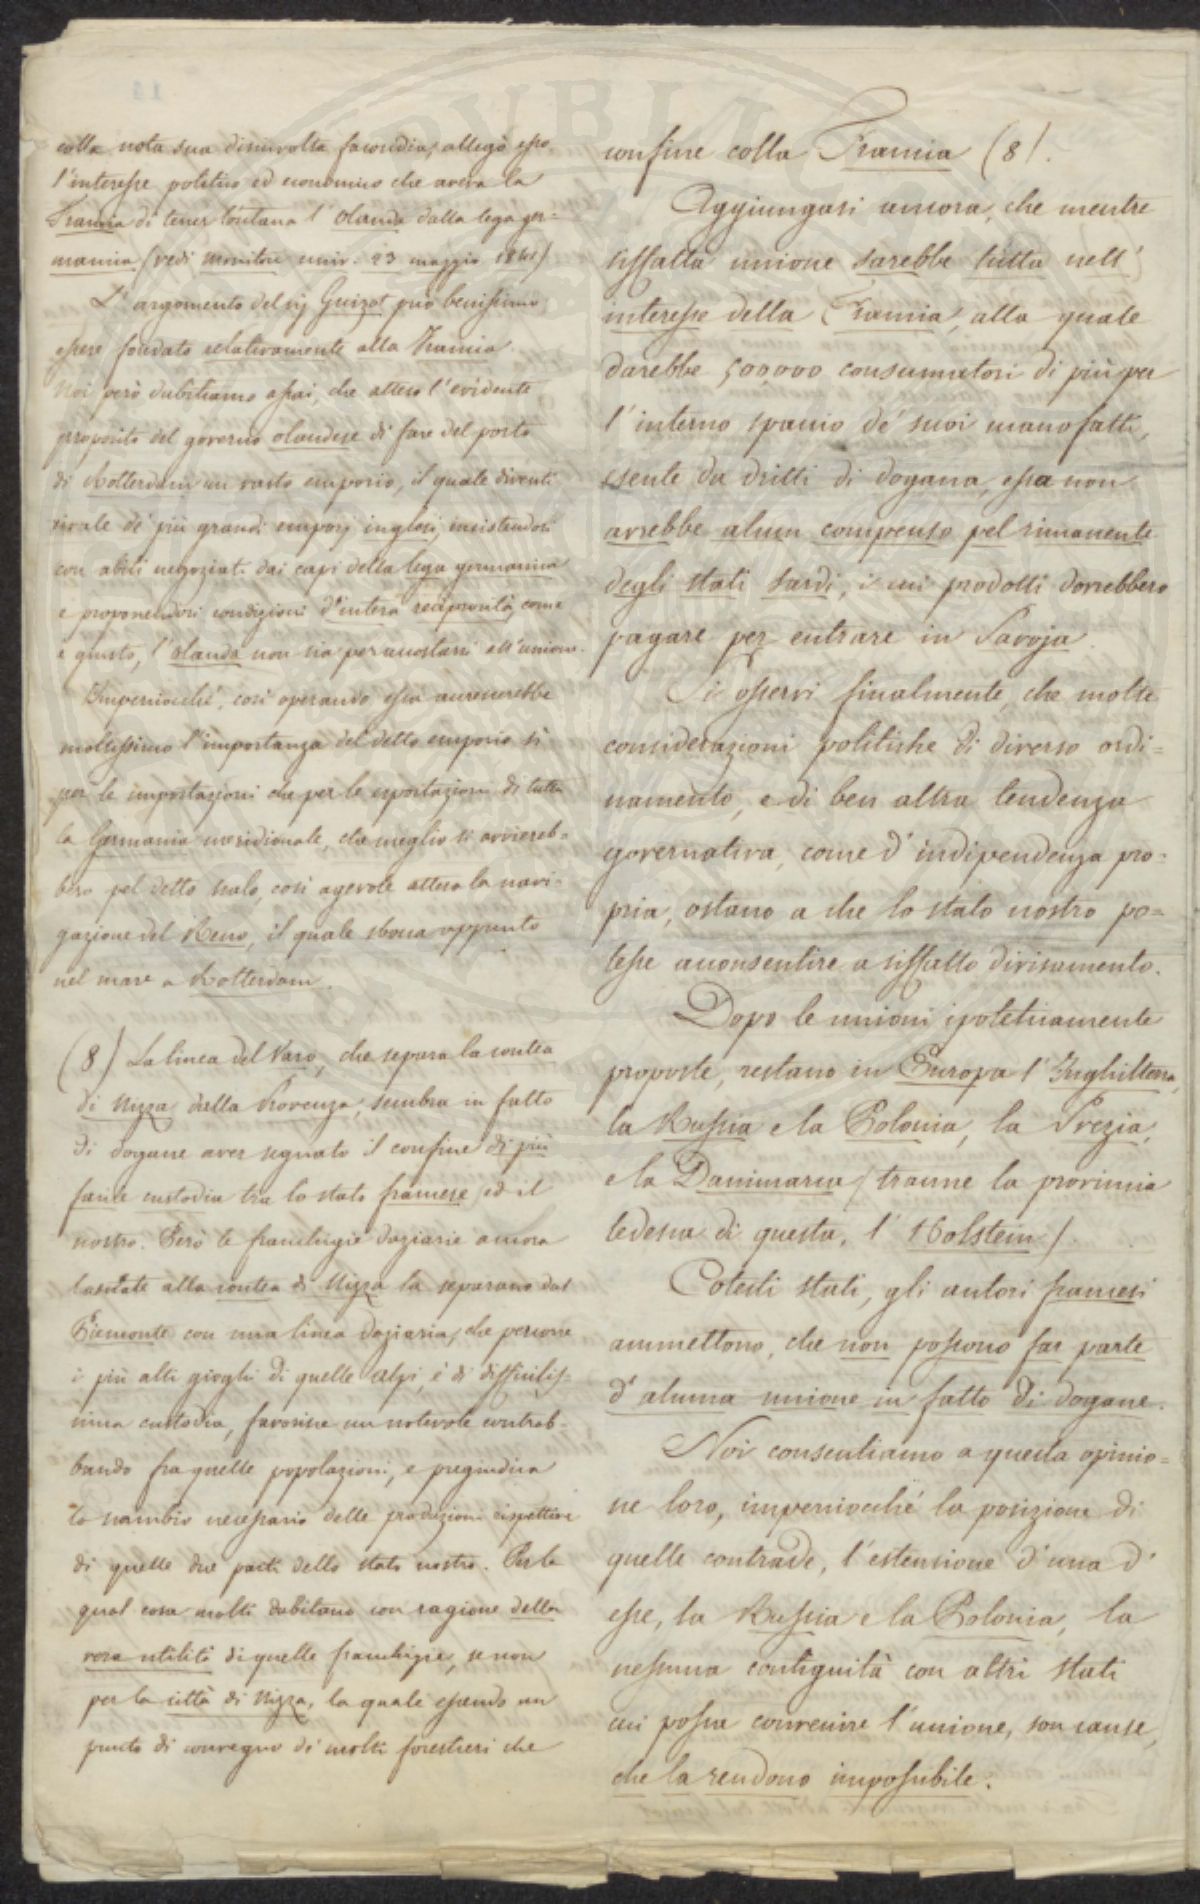 colla nota sua disinvolta facondia, allegò esso
l'interesse politico ed economico che aveva la
Francia di tener lontana l'Olanda dalla lega ger-
manica (vedi Monitore univ. 23 maggio 1841)
L'argomento del sig Guizot può benissimo
essere fondato relativamente alla Francia.
Noi però dubitiamo assai, che atteso l'evidente
proposito del governo olandese di fare del porto
di Rotterdam un vasto emporio, il quale diventi
rivale de' più grandi emporj inglesi, insistendosi
con abili negoziati dai capi della lega germanica
e proponendosi condizioni d'intera reciprocità, come
è giusto, l'Olanda non sia per accostarsi all'unione.
Imperciocché, così operando essa accrescerebbe
moltissimo l'importanza del detto emporio sì
per le importazioni che per le esportazioni di tutta
la Germania meridionale, che meglio si avviereb-
bero pel detto scalo, così agevole attesa la navi-
gazione del Reno, il quale sbocca appunto
nel mare a Rotterdam.
(8) La linea del Varo, che separa la contea
di Nizza dalla Provenza, sembra in fatto
di dogane aver segnato il confine di più
facile custodia tra lo stato francese, ed il
nostro. Però le franchigie daziarie ancora
lasciate alla contea di Nizza la separano dal
Piemonte con una linea daziaria, che percorre
i più alti gioghi di quelle alpi, è di difficilis-
sima custodia, favorisce un notevole contrab-
bando fra quelle popolazioni, e pregiudica
lo scambio necessario delle produzioni rispettive
di quelle due parti dello stato nostro. Per la
qual cosa molti dubitano con ragione della
vera utilità di quelle franchigie, se non
per la città di Nizza, la quale essendo un
punto di convegno di molti forestieri che
confine colla Francia (8).
Aggiungasi ancora, che mentre
siffatta unione sarebbe tutta nell'
interesse della Francia, alla quale
darebbe 500,000 consumatori di più per
l'interno spaccio de' suoi manofatti,
esente da dritti di dogana, essa non
avrebbe alcun compenso pel rimanente
degli stati sardi, i cui prodotti dovrebbero
pagare per entrare in Savoja.
Si osservi finalmente, che molte
considerazioni politiche di diverso ordi=
namento, e di ben altra tendenza
governativa, come d'indipendenza pro=
pria, ostano a che lo stato nostro po=
tesse acconsentire a siffatto divisamento.
Dopo le unioni ipoteticamente
proposte, restano in Europa l'Inghilterra,
la Russia e la Polonia, la Svezia,
e la Danimarca (tranne la provincia
tedesca di questa, l'Holstein).
Cotesti stati, gli autori francesi
ammettono, che non possono far parte
d'alcuna unione in fatto di dogane.
Noi consentiamo a questa opinio=
ne loro, imperciocché la posizione di
quelle contrade, l'estensione d'una d'
esse, la Russia e la Polonia, la
nessuna contiguità con altri stati
cui possa convenire l'unione, son cause,
che la rendono impossibile.